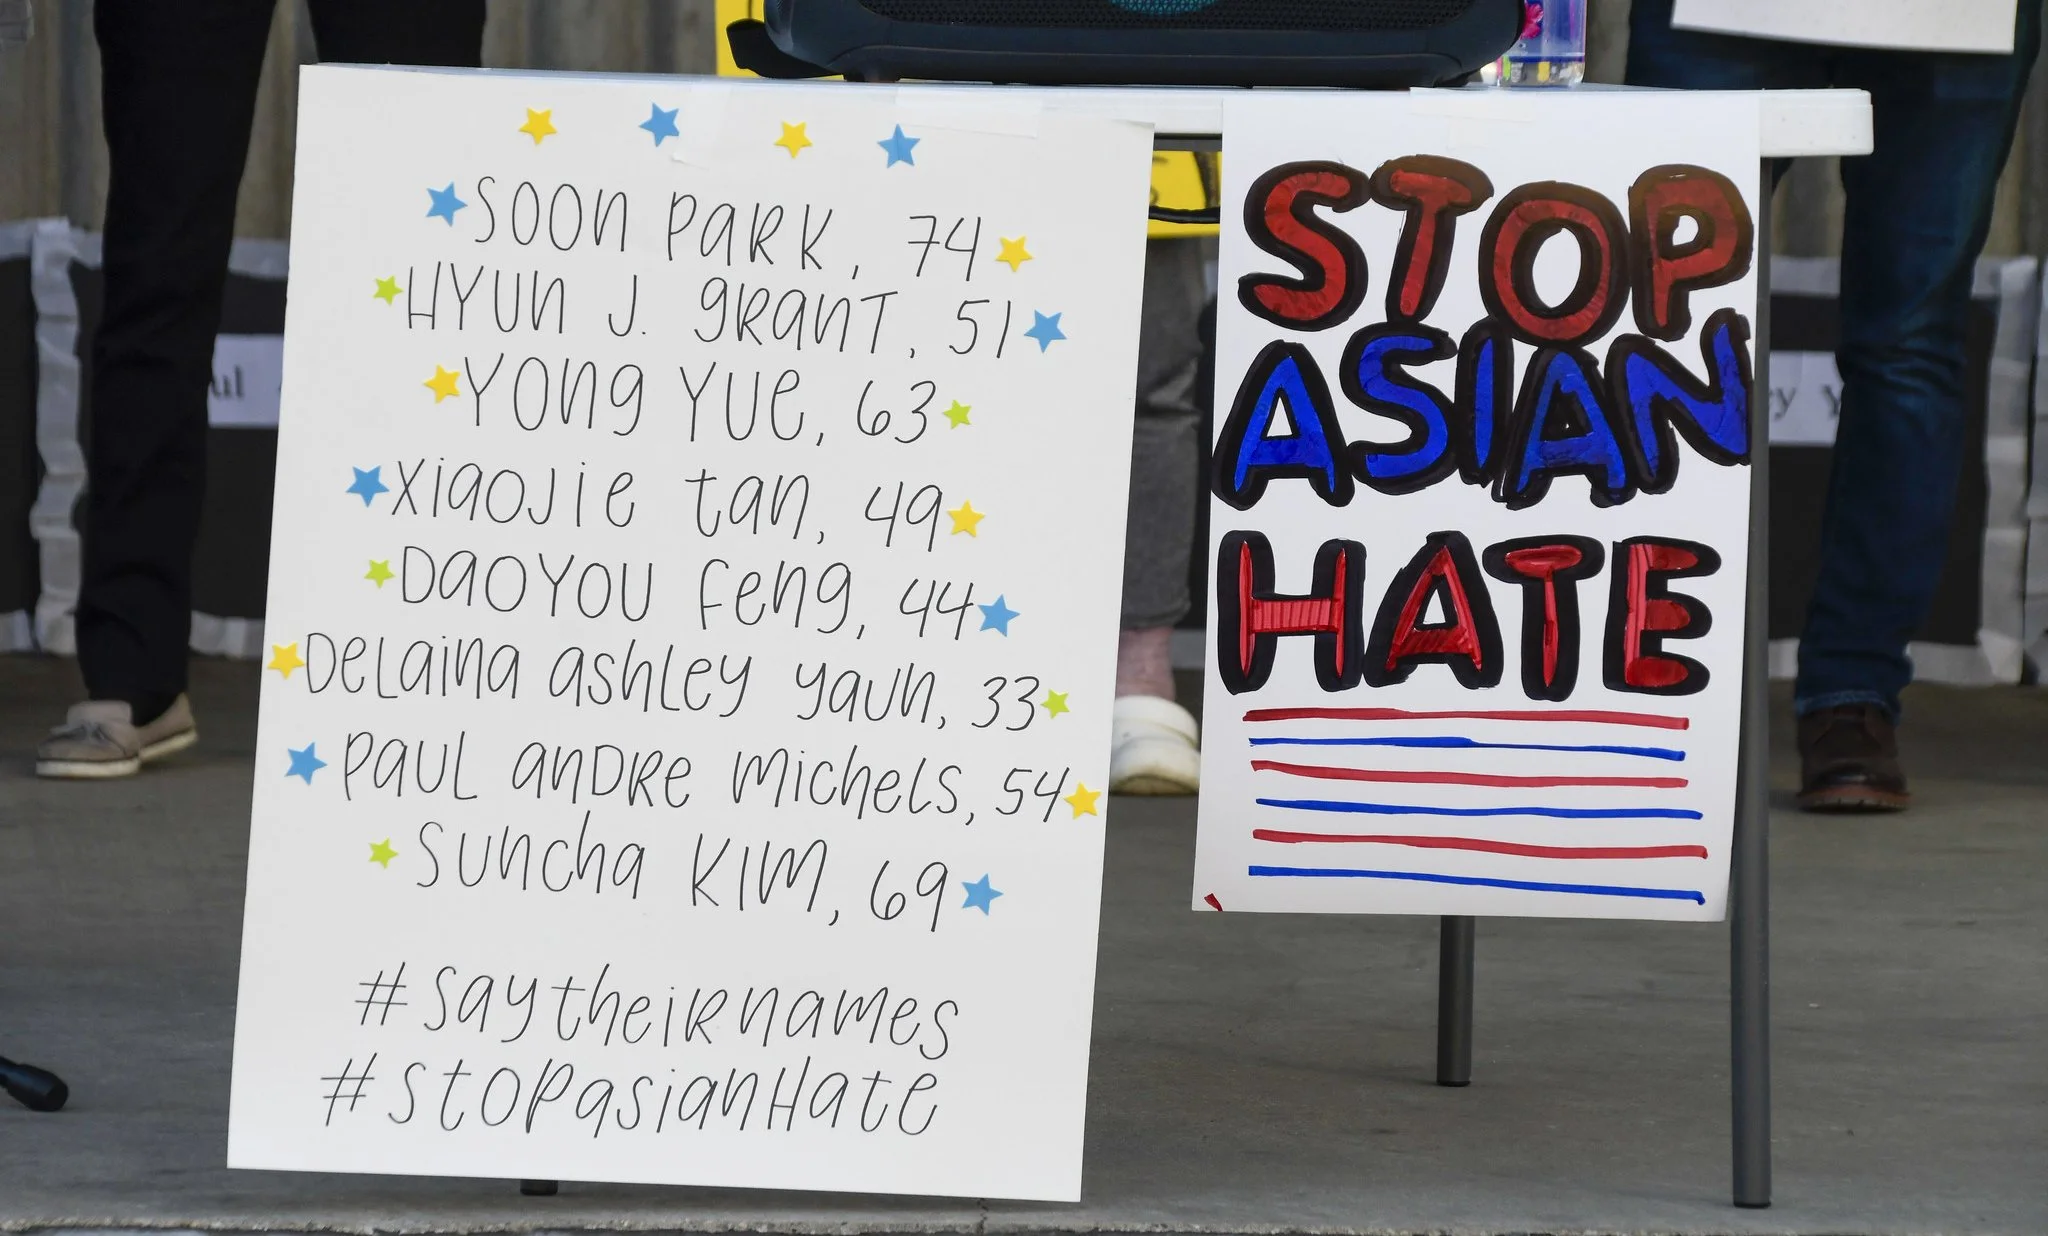 SOON PARK, 74
HYUN J. GRANT, 51
YONG YUE, 63
XIAOJIE TAN, 49
DAOYOU FENG, 44
DELAINA ASHLEY YAUN, 33
PAUL ANDRE MICHELS, 54
SUNCHA KIM, 69
#SAYTHEIRNAMES
#STOPASIANHATE
STOP
ASIAN
HATE